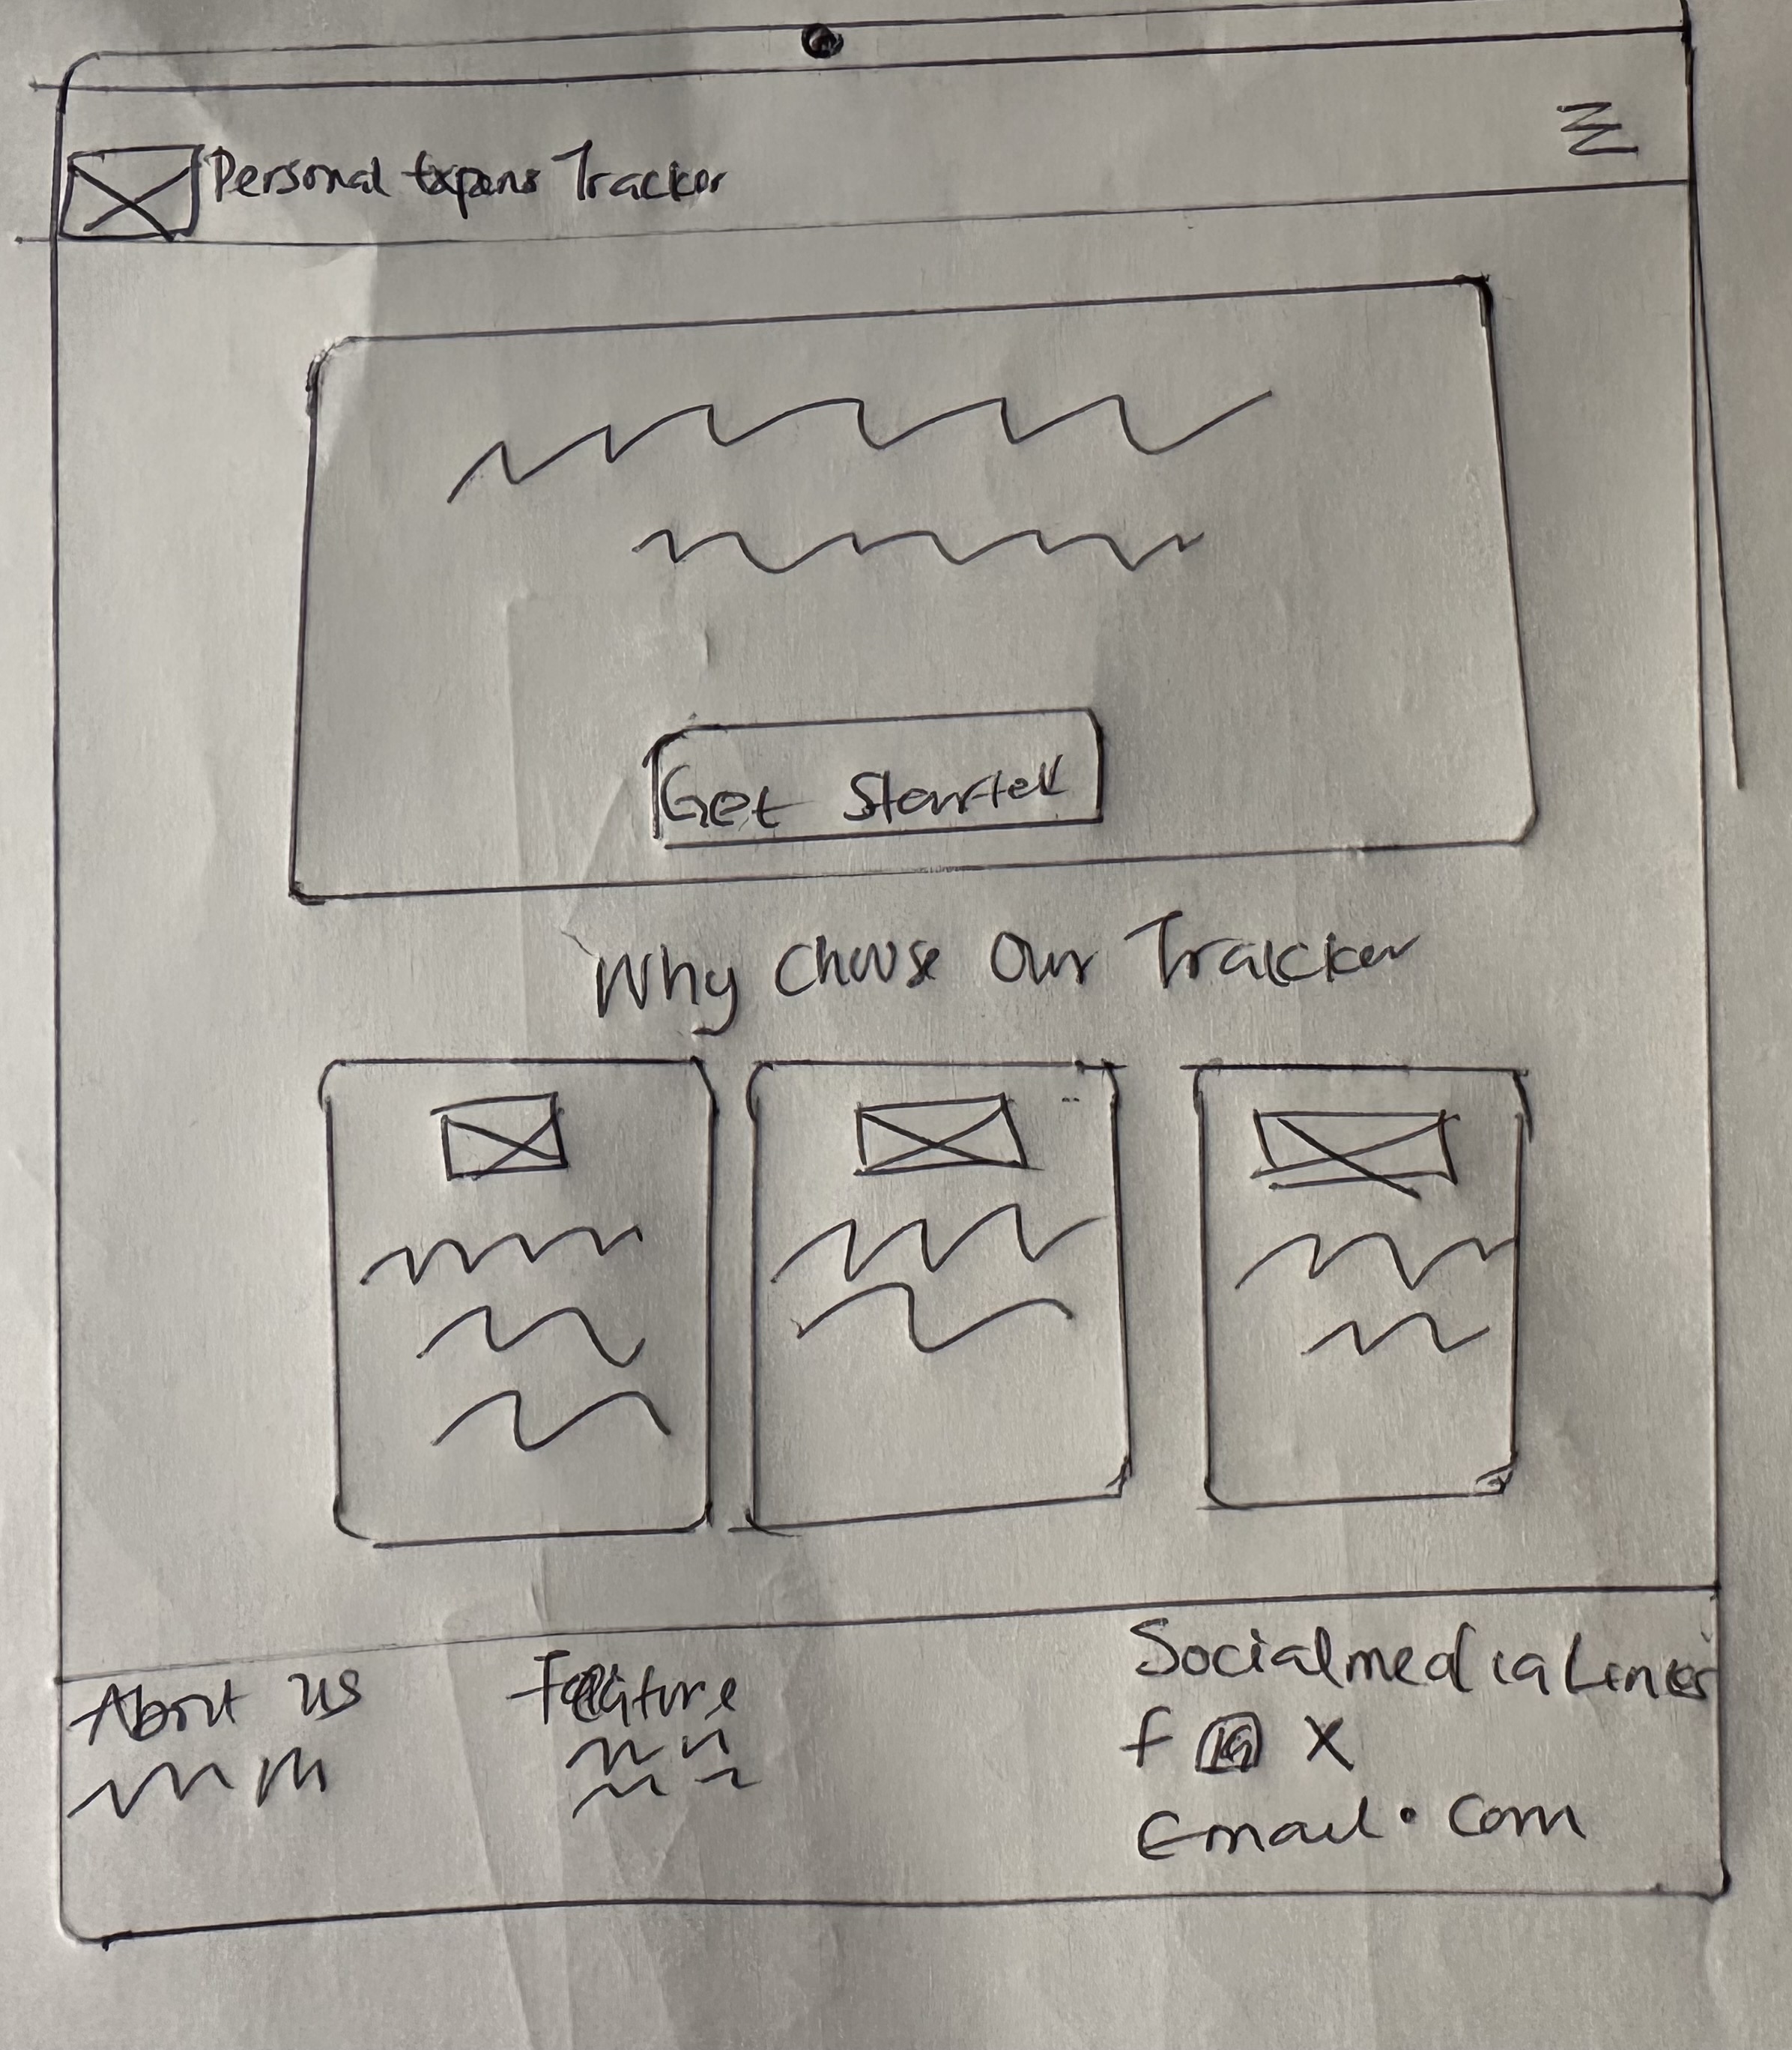 Personal Expens Tracker
Get Started
Why Choose Our Tracker
About us
Feature
Socialmedia Links
f IG X
Email.com